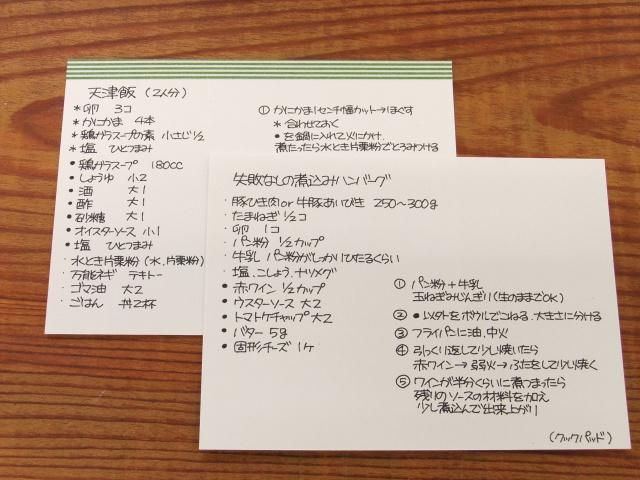 天津飯（2人分）
* 卵 3コ
* かにかま 4本
* 鶏ガラスープの素 小さじ½
* 塩 ひとつまみ
• 鶏ガラスープ 180cc
• しょうゆ 小2
• 酒 大1
• 酢 大1
• 砂糖 大1
• オイスターソース 小1
• 塩 ひとつまみ
水とき片栗粉（水、片栗粉）
• 万能ネギ テキトー
• ゴマ油 大2
• ごはん 丼2杯
① かにかま1センチ幅カット→ほぐす
* 合わせておく
• を鍋に入れて火にかけ、
煮たったら水とき片栗粉でとろみつける
失敗なしの煮込みハンバーグ
・豚ひき肉or牛豚あいびき 250〜300g
・たまねぎ ½コ
・卵 1コ
・パン粉 ½カップ
・牛乳 パン粉がしっかりひたるくらい
・塩、こしょう、ナツメグ
• 赤ワイン ½カップ
• ウスターソース 大2
• トマトケチャップ 大2
• バター 5g
• 固形チーズ 1ヶ
① パン粉+牛乳
玉ねぎみじんぎり（生のままでOK）
② •以外をボウルでこねる、大きさに分ける
③ フライパンに油、中火
④ 引っくり返して少し焼いたら
赤ワイン→弱火→ふたをして少し焼く
⑤ ワインが半分くらいに煮つまったら
残りのソースの材料を加え
少し煮込んで出来上がり
（クックパッド）